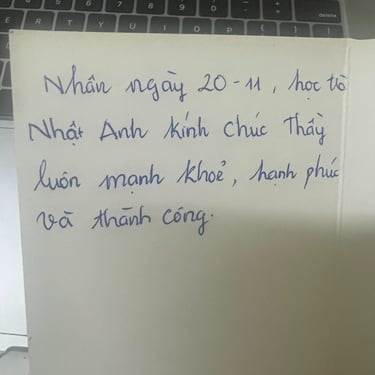 Nhân ngày 20-11, học trò
Nhật Anh kính chúc Thầy
luôn mạnh khoẻ, hạnh phúc
và thành công.